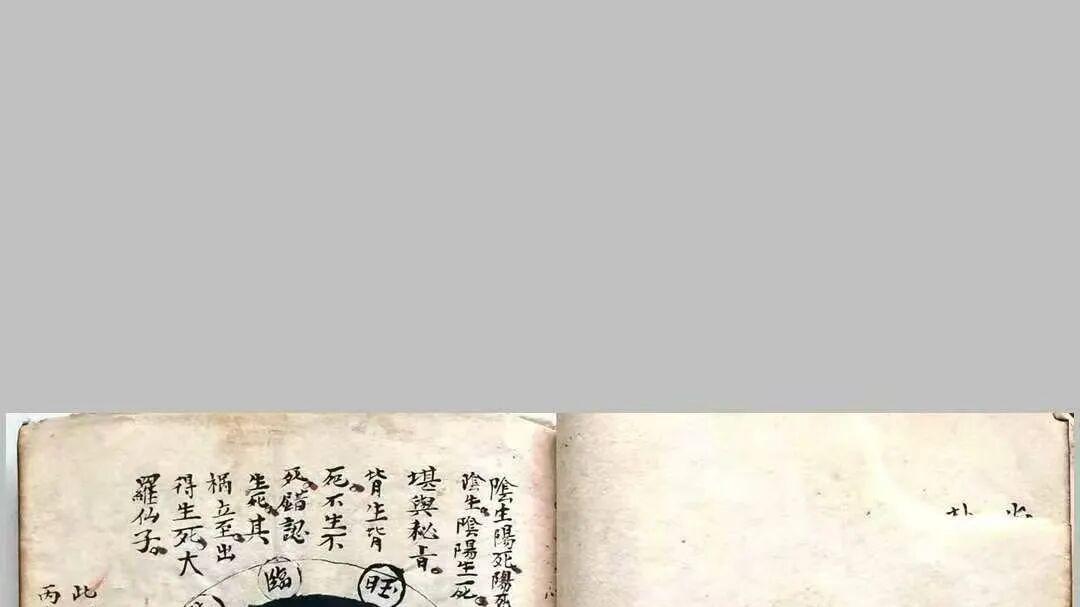 陰生陽死陽死
陰生陰陽生一死
堪輿秘旨
皆生皆
死不生不
死錯認
生死其
禍立至出
得生死大
羅仙子
臨
旺
此
丙